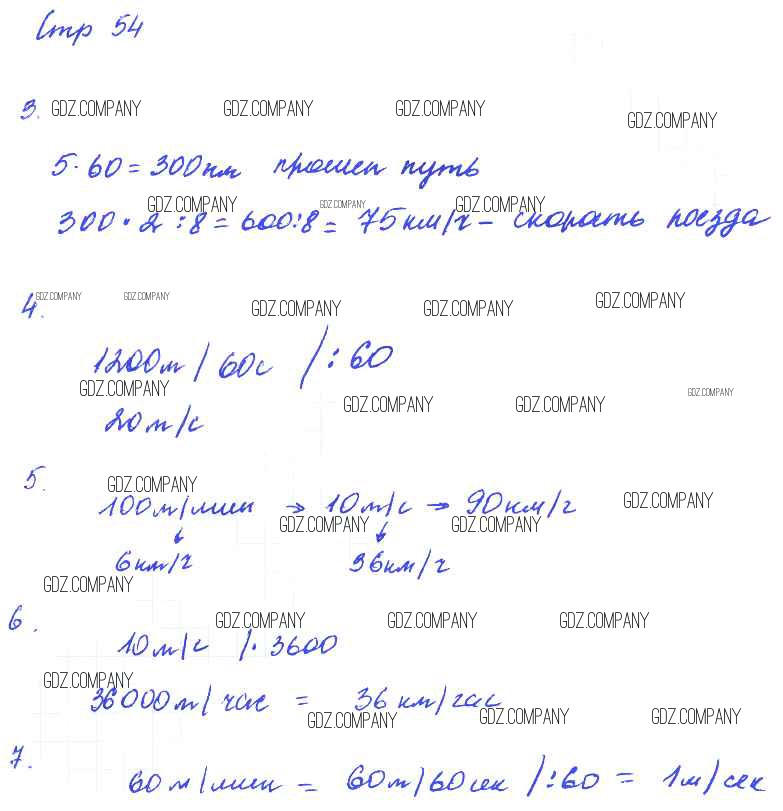 Стр 54
3. GDZ.COMPANY GDZ.COMPANY GDZ.COMPANY GDZ.COMPANY
5·60=300км прошел путь
GDZ.COMPANY GDZ.COMPANY GDZ.COMPANY
300·2:8=600:8=75км/ч - скорость поезда
4. GDZ.COMPANY GDZ.COMPANY GDZ.COMPANY GDZ.COMPANY GDZ.COMPANY
1200м/60с /:60
GDZ.COMPANY GDZ.COMPANY GDZ.COMPANY GDZ.COMPANY
20м/с
5. GDZ.COMPANY
100м/мин → 10м/с → 90км/ч GDZ.COMPANY
↓ GDZ.COMPANY ↓ GDZ.COMPANY
6км/ч 36км/ч
GDZ.COMPANY
6. GDZ.COMPANY GDZ.COMPANY GDZ.COMPANY
10м/с /·3600
GDZ.COMPANY
36000м/час = 36км/час
GDZ.COMPANY GDZ.COMPANY GDZ.COMPANY
7.
60м/мин = 60м/60сек /:60 = 1м/сек